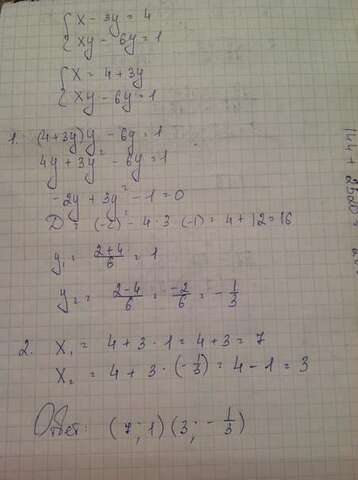 { x - 3y = 4
{ xy - 6y = 1
{ x = 4 + 3y
{ xy - 6y = 1
1. (4+3y)y - 6y = 1
4y + 3y² - 6y = 1
-2y + 3y² - 1 = 0
D = (-2)² - 4·3·(-1) = 4 + 12 = 16
y₁ = (2+4)/6 = 1
y₂ = (2-4)/6 = -2/6 = -1/3
2. x₁ = 4 + 3·1 = 4 + 3 = 7
x₂ = 4 + 3·(-1/3) = 4 - 1 = 3
Ответ: (7; 1) (3; -1/3)
144 + 2520 =